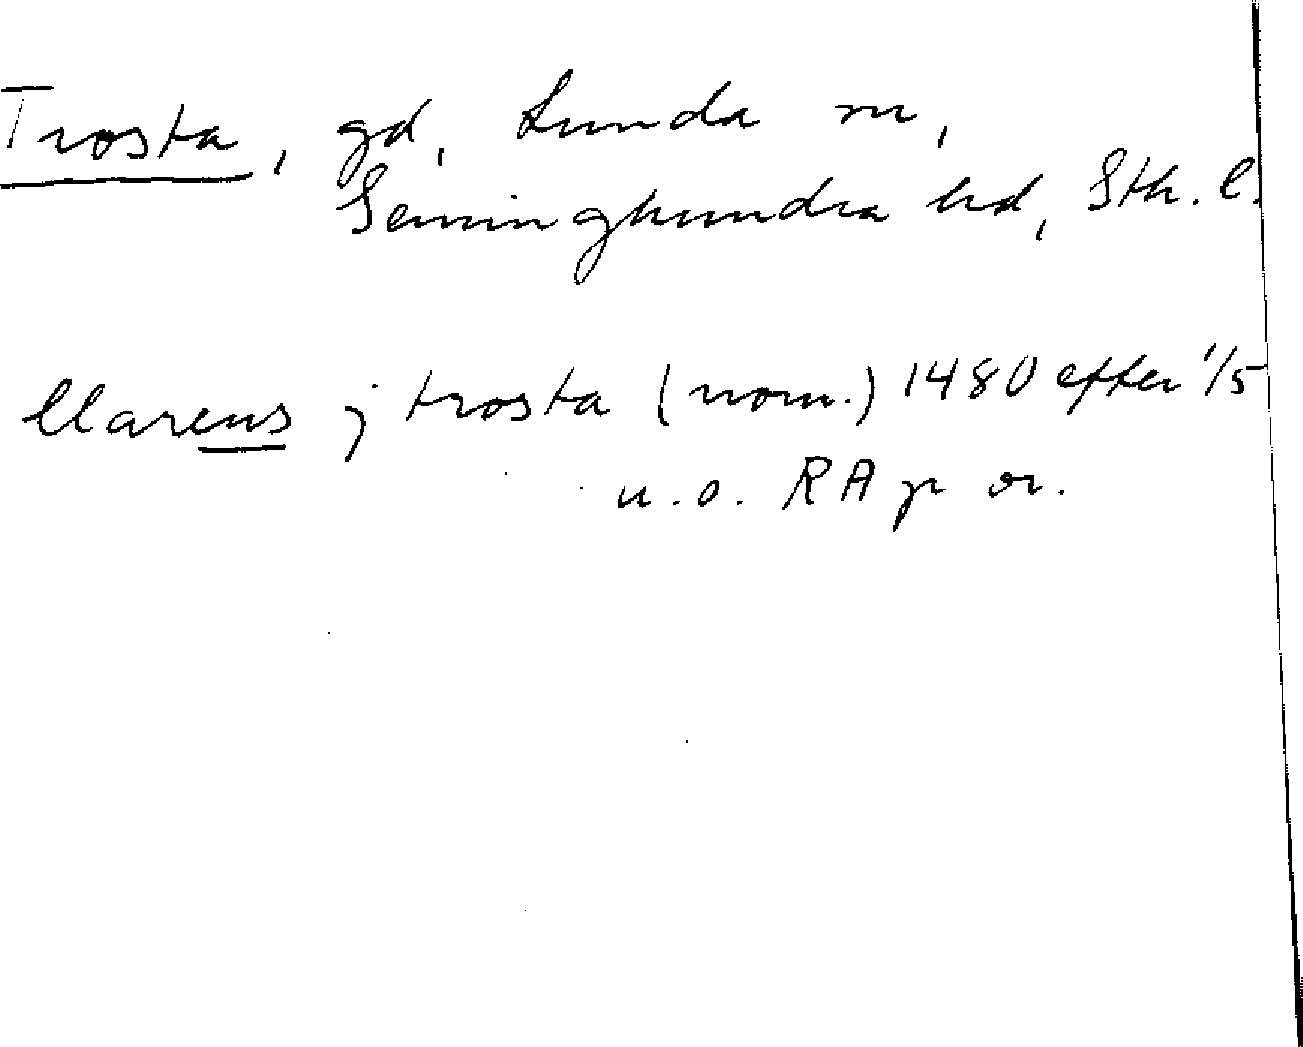 Trosta, gd, Lunda sn,
Seminghundra hd, Sth. l.
Clarens j trosta (nom.) 1480 efter 1/5
u.o. RAp or.